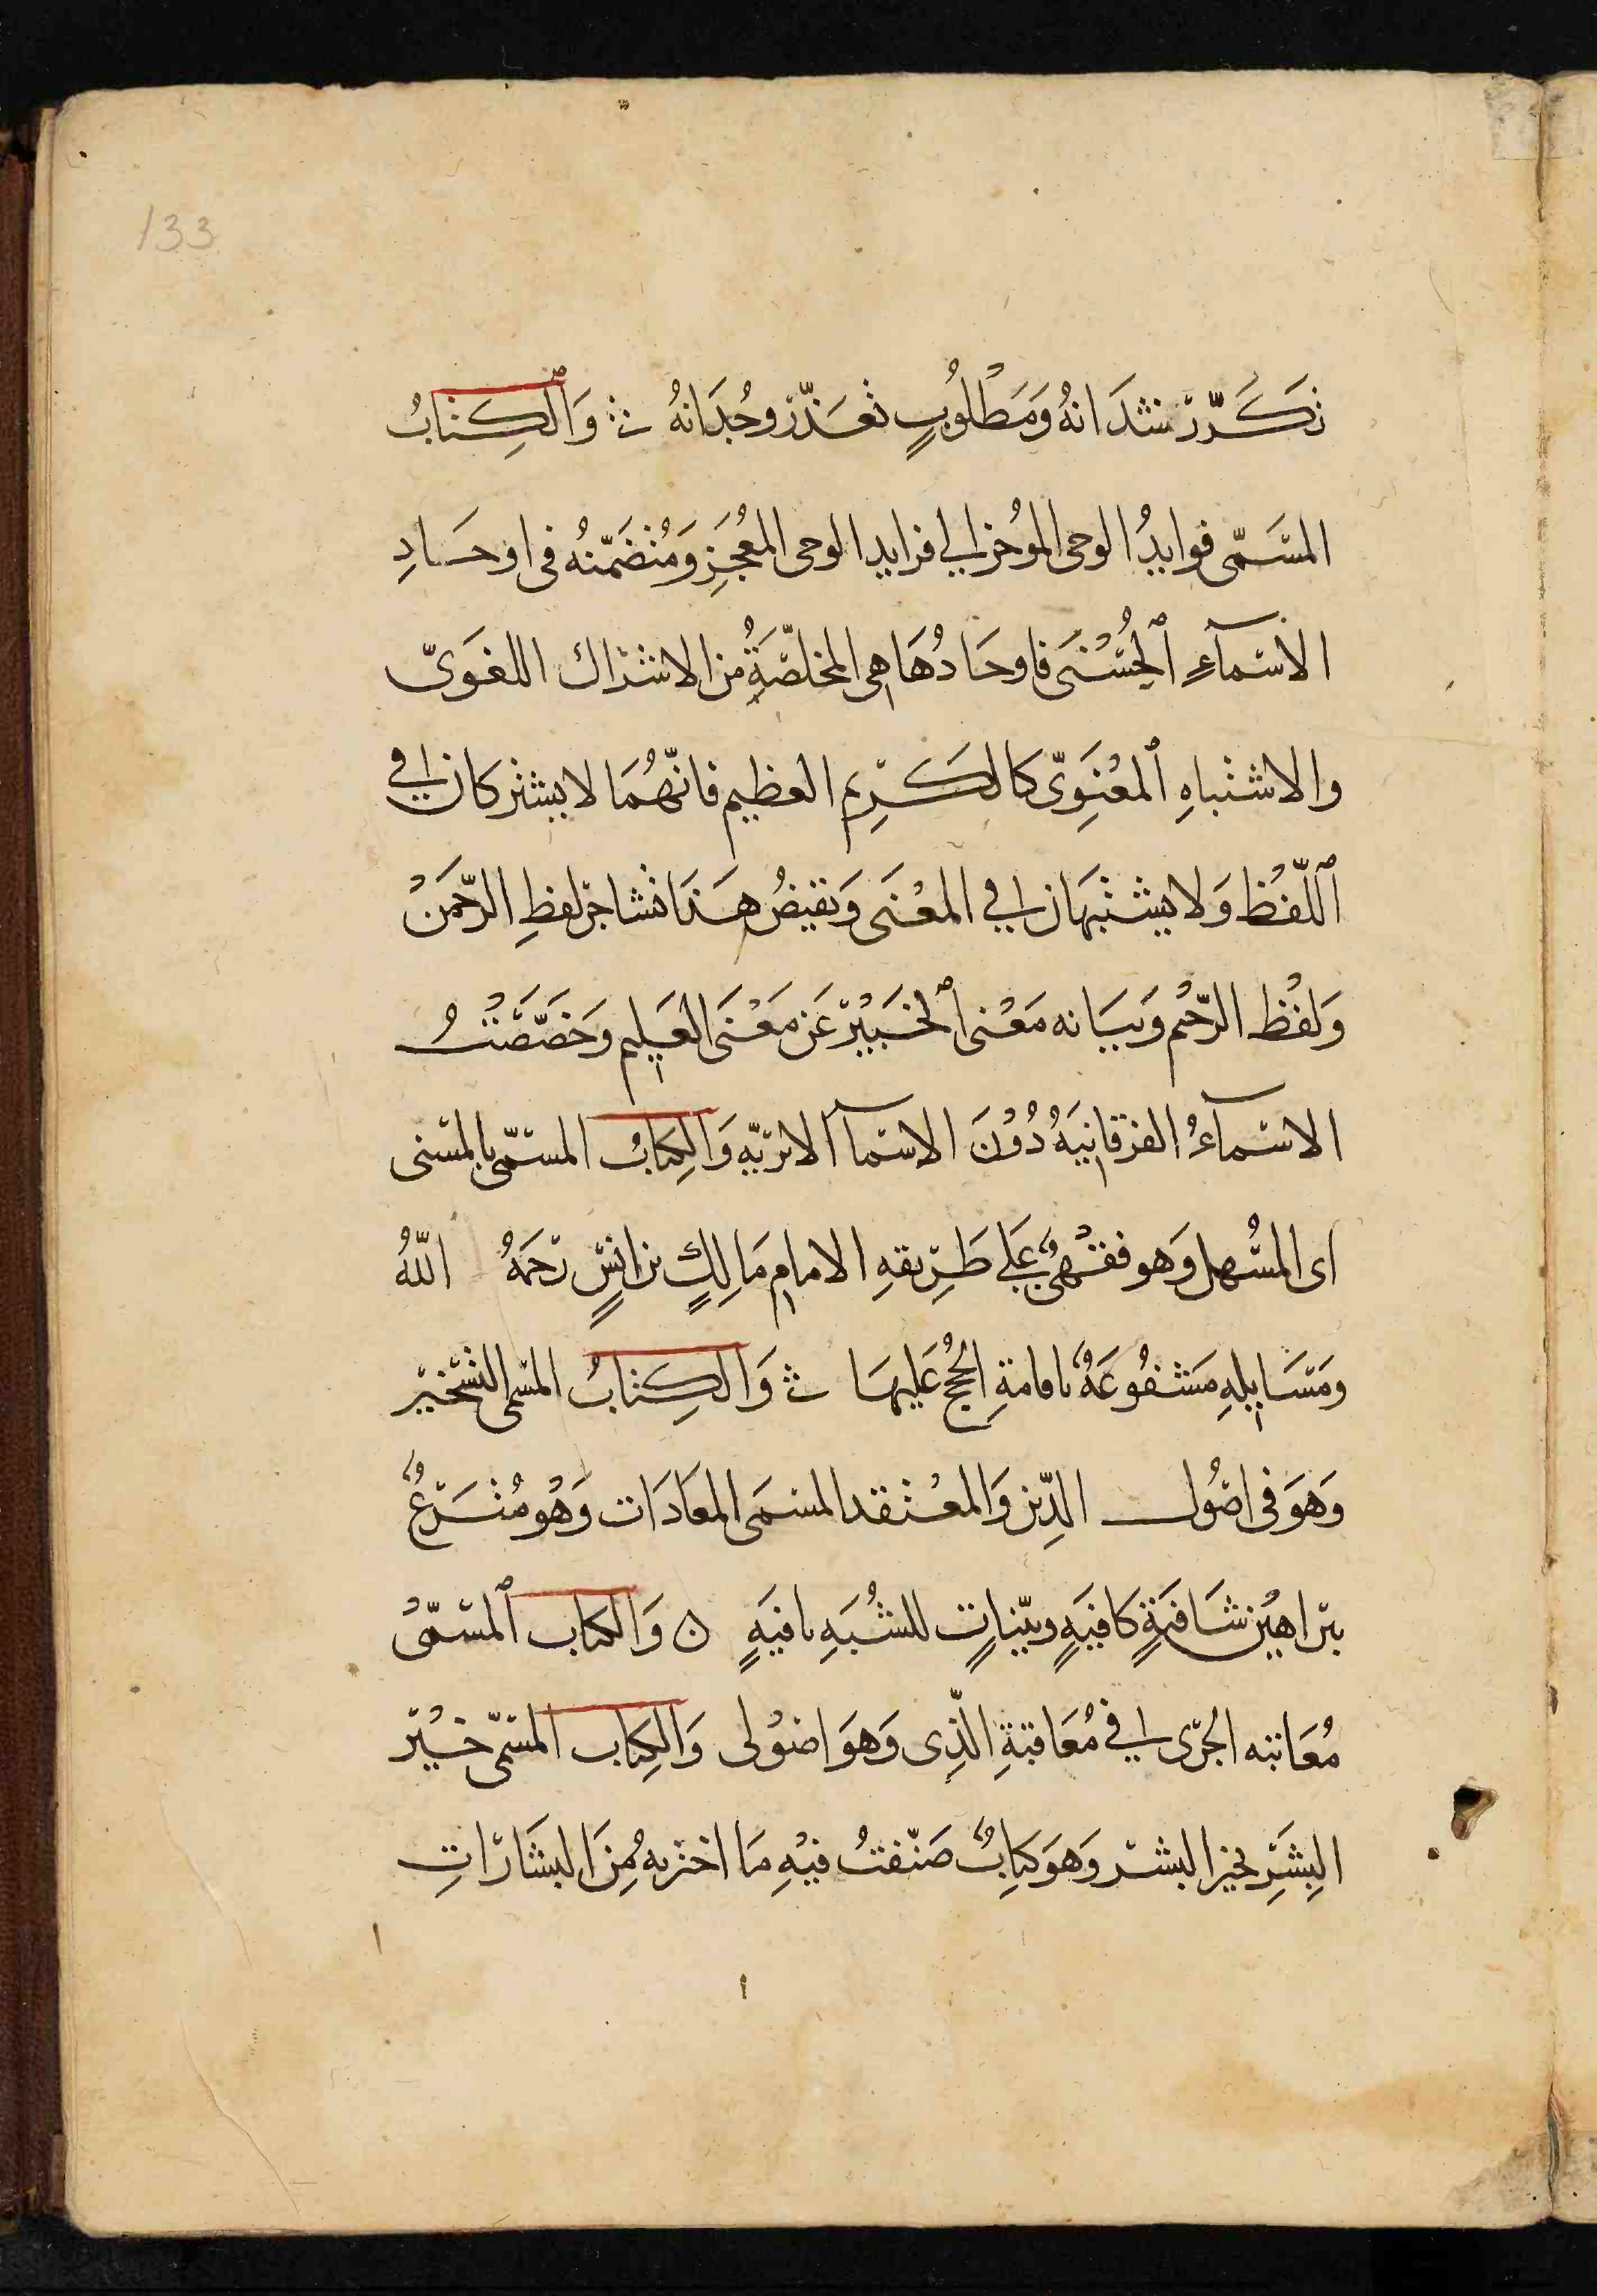 133
تكَرّر نشدَانهُ وَمَطْلُوبٍ تعَذّر وجُدَانهُ ۞ وَٱلكِتابُ
المسَمّى فوايدُ الوحى الموُجز الي فرايد الوحى المعُجِز وَمُتضَمّنهُ فى اوحَادِ
الاسمآءِ ٱلحُسْنَى فاوحَادُهَا هى المخلصَّةُ من الاشتراك اللغَوىّ
والاشتباهِ ٱلمعْنَوِىّ كالكَرِيم العظيم فانّهُمَا لا يشتركان في
ٱللّفْظ وَلا يشتبهَان في المعْنَى وَنقيضُ هَذَا تشاجر لفظِ الرّحمَنْ
وَلفْظ الرّحْيم وَبيَانه مَعْنى ٱلخَبيْر عَن مَعْنَى العَليم وَخصّصَتُ
الاسمآءُ الفرقانيَهُ دُوْنَ الاسمآ الاثريّه وَالكِتابُ المسمّى بالمسنى
اى المسُهل وَهو فقهىٌ عَلى طَرِيقهِ الامامِ مَالِكٍ بن انسٍ رَحمَهُ اللّهُ
ومَسَايلهِ مَشفُوعَةٌ باقامةِ الحجُج عَليهَا ۞ وَالكِتابُ المسمى التسْخيْر
وَهوَ فى اصُول الدِّين وَالمعْتقد المسمَى المعَادَات وَهُو مُشَرّعٌ
ببرَاهيْن شَافيَةٍ كَافيَهٍ وبيّناتٍ للشُبَهِ نافيَهٍ ۞ وَالكتاب ٱلمسَمّىْ
مُعَاتبه الجرّى في مُعَاقبَةِ الذِّى وَهوَ اصُوْلى وَالكِتاب المسَمّى خيْر
البِشَرِ بخير البشر وَهوَ كتِابٌ صَنّفتُ فيْهِ مَا اختربهُ مِنَ البشَارَاتِ